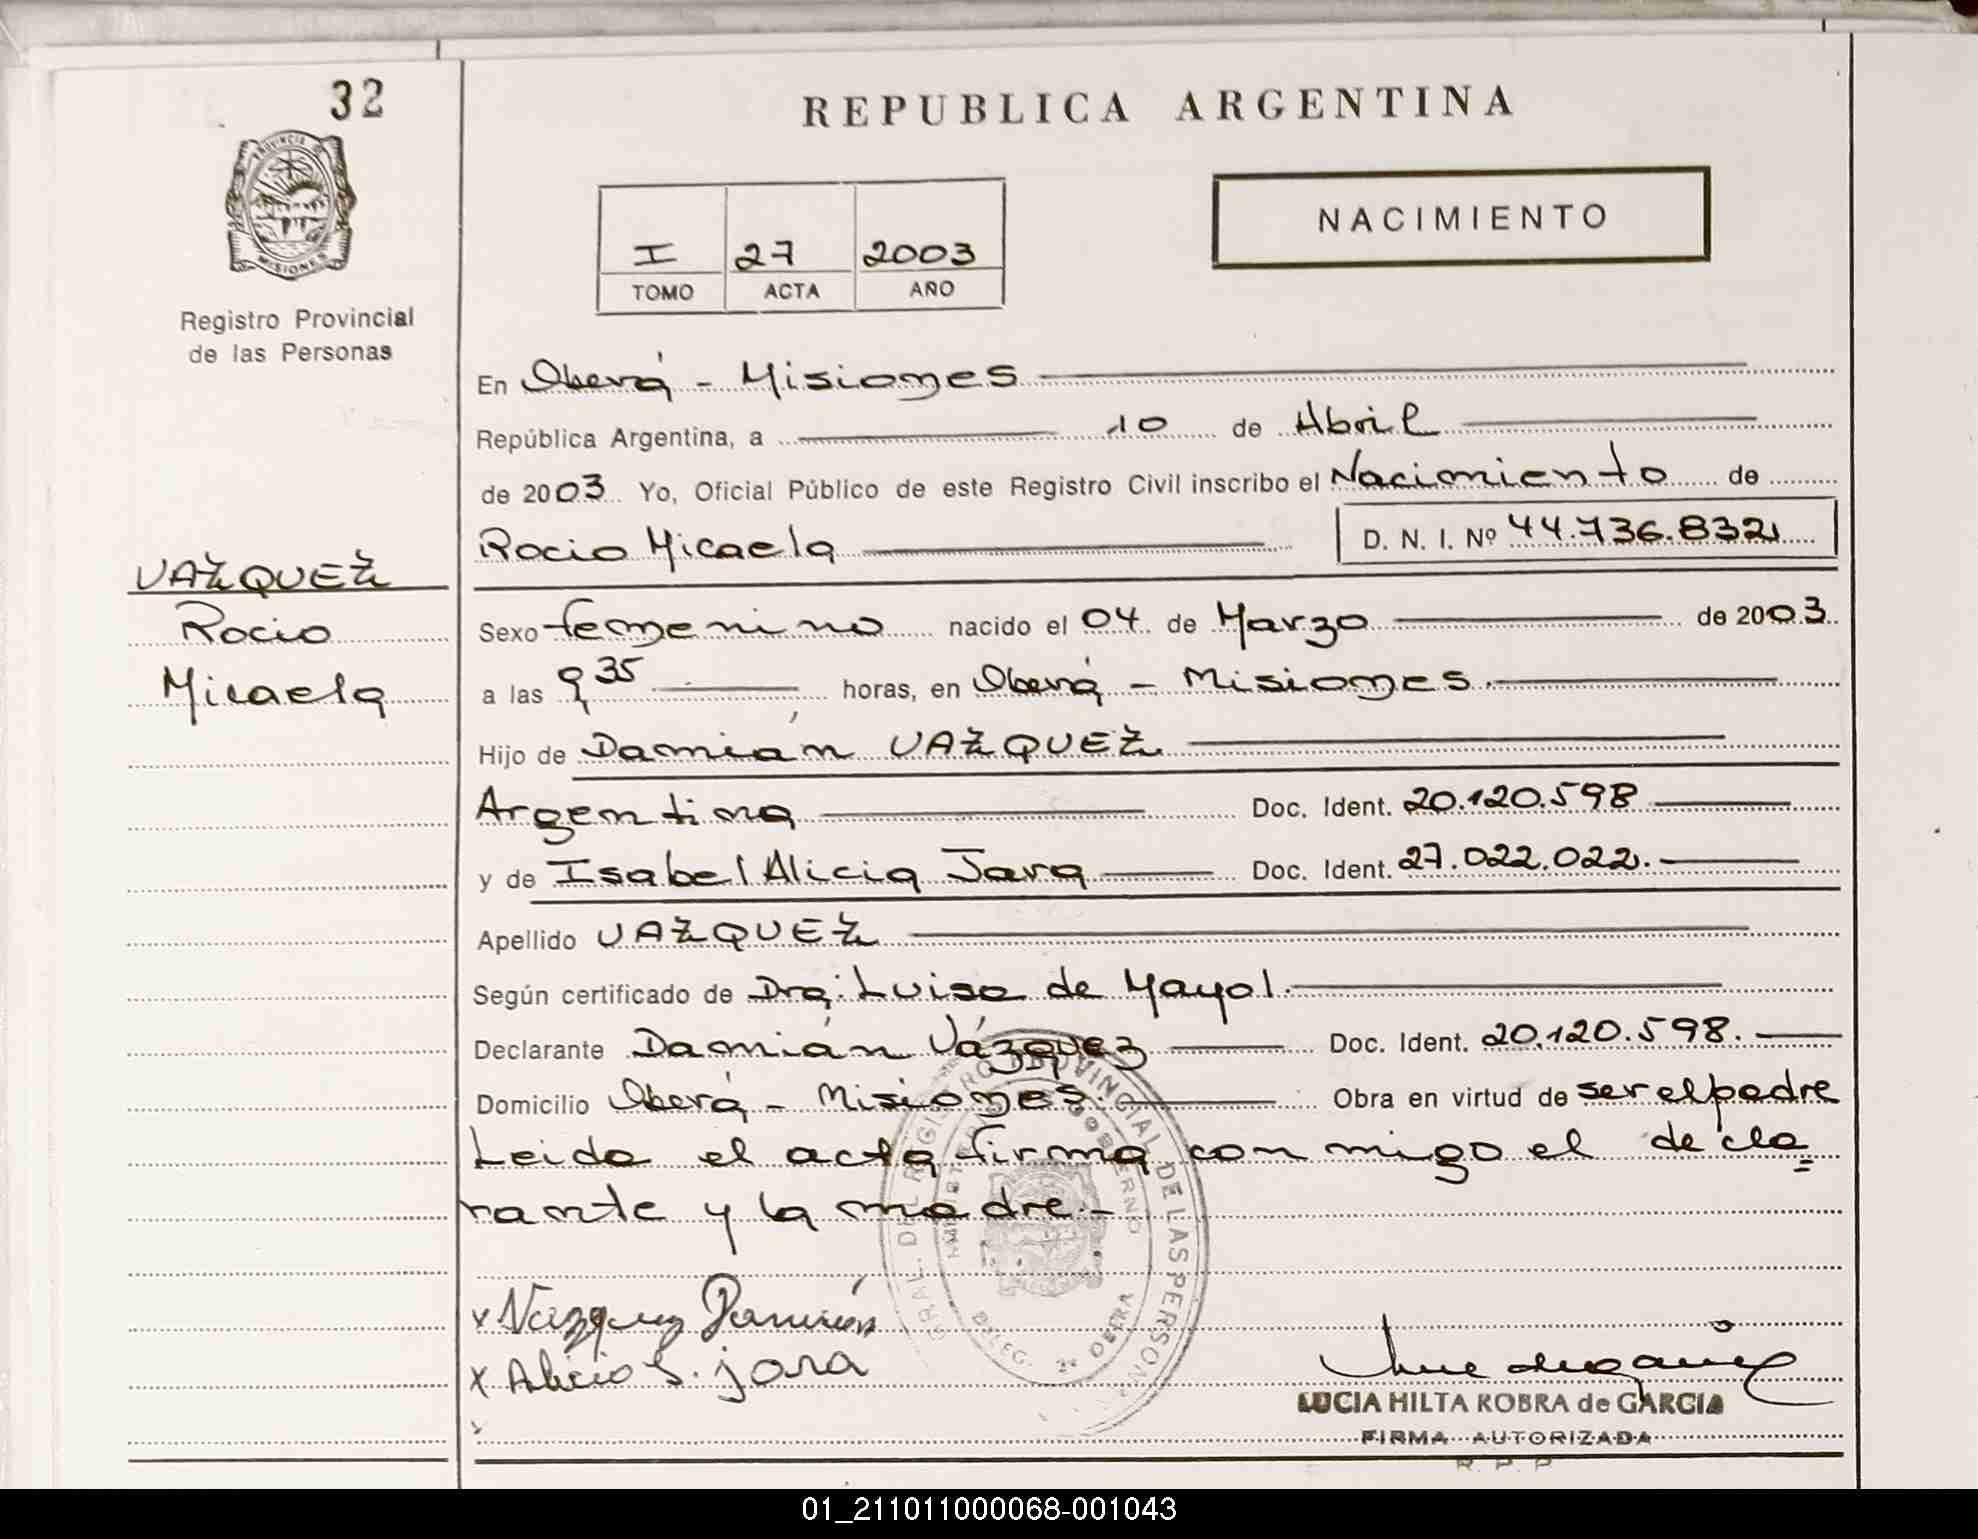 32
PROVINCIA DE
MISIONES
Registro Provincial
de las Personas
VAZQUEZ
Rocio
Micaela
REPUBLICA ARGENTINA
I 27 2003
TOMO ACTA AÑO
NACIMIENTO
En Oberá - Misiones
República Argentina, a 10 de Abril
de 2003 Yo, Oficial Público de este Registro Civil inscribo el Nacimiento de
Rocio Micaela D. N. I. Nº 44.736.832
Sexo femenino nacido el 04 de Marzo de 2003
a las 9 35 horas, en Oberá - Misiones.
Hijo de Damián VAZQUEZ
Argentina Doc. Ident. 20.120.598
y de Isabel Alicia Jara Doc. Ident. 27.022.022.
Apellido VAZQUEZ
Según certificado de Dra: Luisa de Mayol.
Declarante Damián Vázquez Doc. Ident. 20.120.598.
Domicilio Oberá - Misiones. Obra en virtud de ser el padre
Leida el acta firma con migo el decla=
rante y la madre.-
GRAL. DEL REGISTRO PROVINCIAL DE LAS PERSONAS
MINISTERIO DE GOBIERNO
DELEG. 2ª OBERA
x Vazquez Damián
x Alicia I. jara
LUCIA HILTA ROBRA de GARCIA
FIRMA AUTORIZADA
R. P. P
01_211011000068-001043